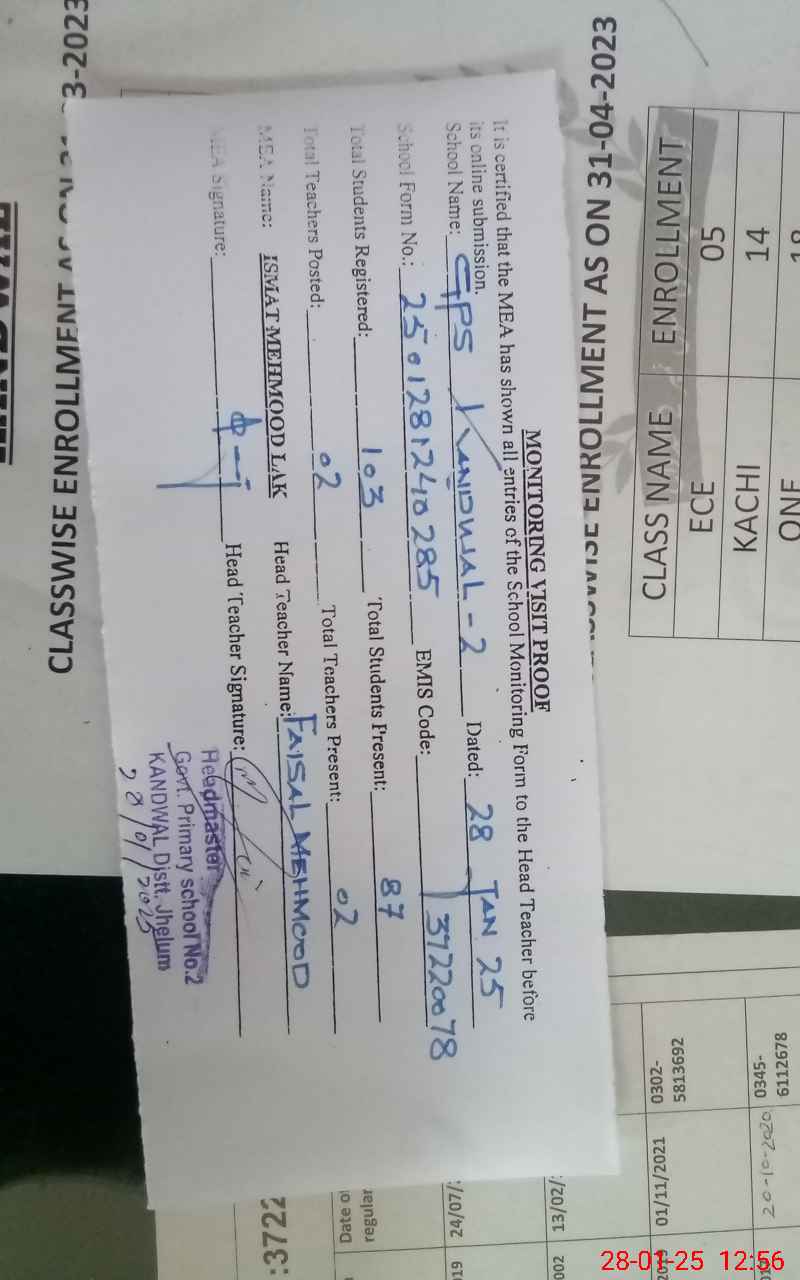 MONITORING VISIT PROOF
It is certified that the MEA has shown all entries of the School Monitoring Form to the Head Teacher before
its online submission.
School Name: GPS KANDWAL-2 Dated: 28 JAN 25
School Form No.: 2501281240285 EMIS Code: 37220078
Total Students Registered: 103 Total Students Present: 87
Total Teachers Posted: 02 Total Teachers Present: 02
MEA Name: ISMAT MEHMOOD LAK Head Teacher Name: FAISAL MEHMOOD
MEA Signature: Head Teacher Signature:
Headmaster
Govt. Primary school No.2
KANDWAL Distt. Jhelum
28/01/2025
CLASSWISE ENROLLMENT AS ON 3-2023
ENROLLMENT AS ON 31-04-2023
CLASS NAME ENROLLMENT
ECE 05
KACHI 14
ONE
:3722
Date o
regular
24/07/
13/02/
019
002
01/11/2021
0302-
5813692
20-10-2020
0345-
6112678
2019
28-01-25 12:56